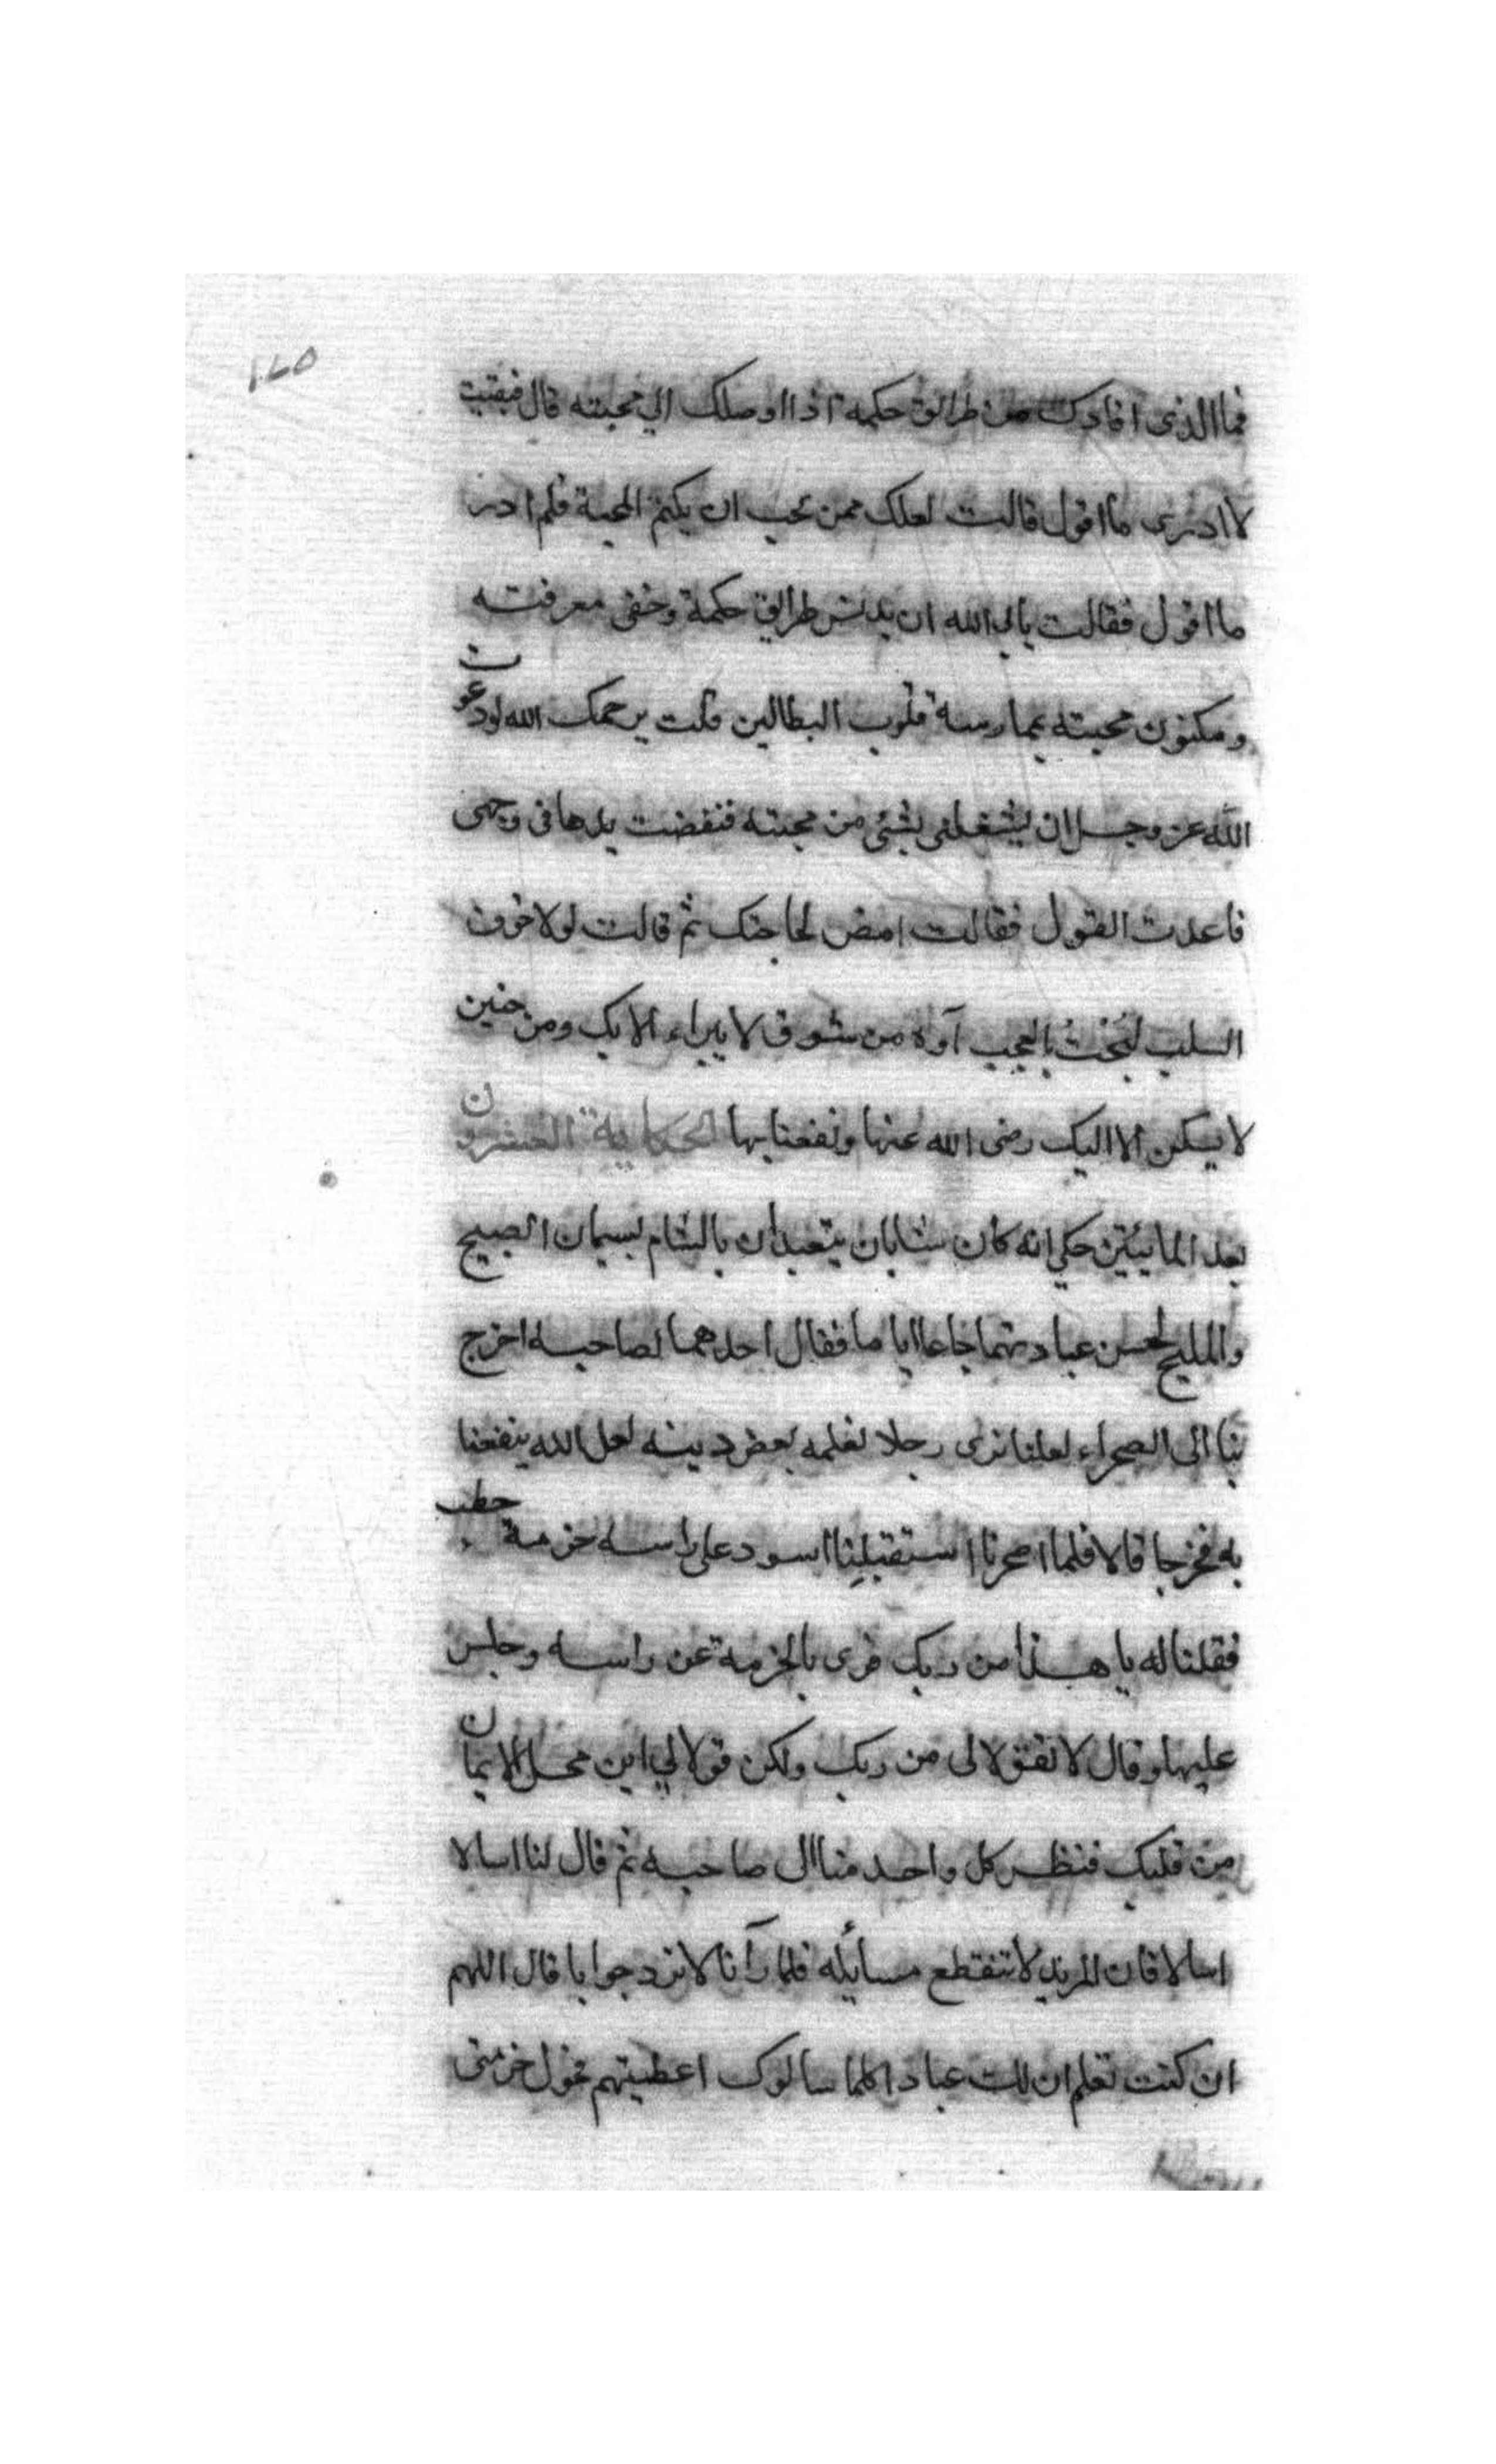 ١٤٥
فما الذى افادك من طرائق حكمه اذا اوصلك الي محبته قال فبقيت
لا ادرى ما اقول قالت لعلك ممن يحب ان يكتم المحبة فلم ادر
ما اقول فقالت يابى الله ان يدنس طرايق حكمة وخفى معرفته
ومكنون محبته بممارسة قلوب البطالين قلت يرحمك الله لو دعوت
الله عز وجل ان يشغلنى بشئى من محبته فنفضت يدها فى وجهى
فاعدت القول فقالت امض لحاجتك ثم قالت لولا خوف
السلب لبحت بالعجب آوه من شوق لا يبراء الا بك ومن حنين
لا يسكن الا اليك رضى الله عنها ونفعنا بها الحكاية العشرون
بعد المائيتين حكي انه كان شابان يتعبدان بالشام يسميان الصبيح
والمليح لحسن عبادتهما جاعا اياما فقال احدهما لصاحبه اخرج
بنا الى الصحراء لعلنا نرى رجلا نعلمه بعض دينه لعل الله ينفعنا
به فخرجا قالا فلما اصحرنا استقبلنا اسود على راسه حزمة حطب
فقلنا له يا هذا من ربك فرمى بالحزمة عن راسه وجلس
عليها وقال لا تقولا لى من ربك ولكن قولا لي اين محل الايمان
من قلبك فنظر كل واحد منا الى صاحبه ثم قال لنا اسالا
اسالا فان المريد لا تنقطع مسائله فلما رآنا لا نرد جوابا قال اللهم
ان كنت تعلم ان لك عبادا كلما سالوك اعطيتهم فحول حزمتى